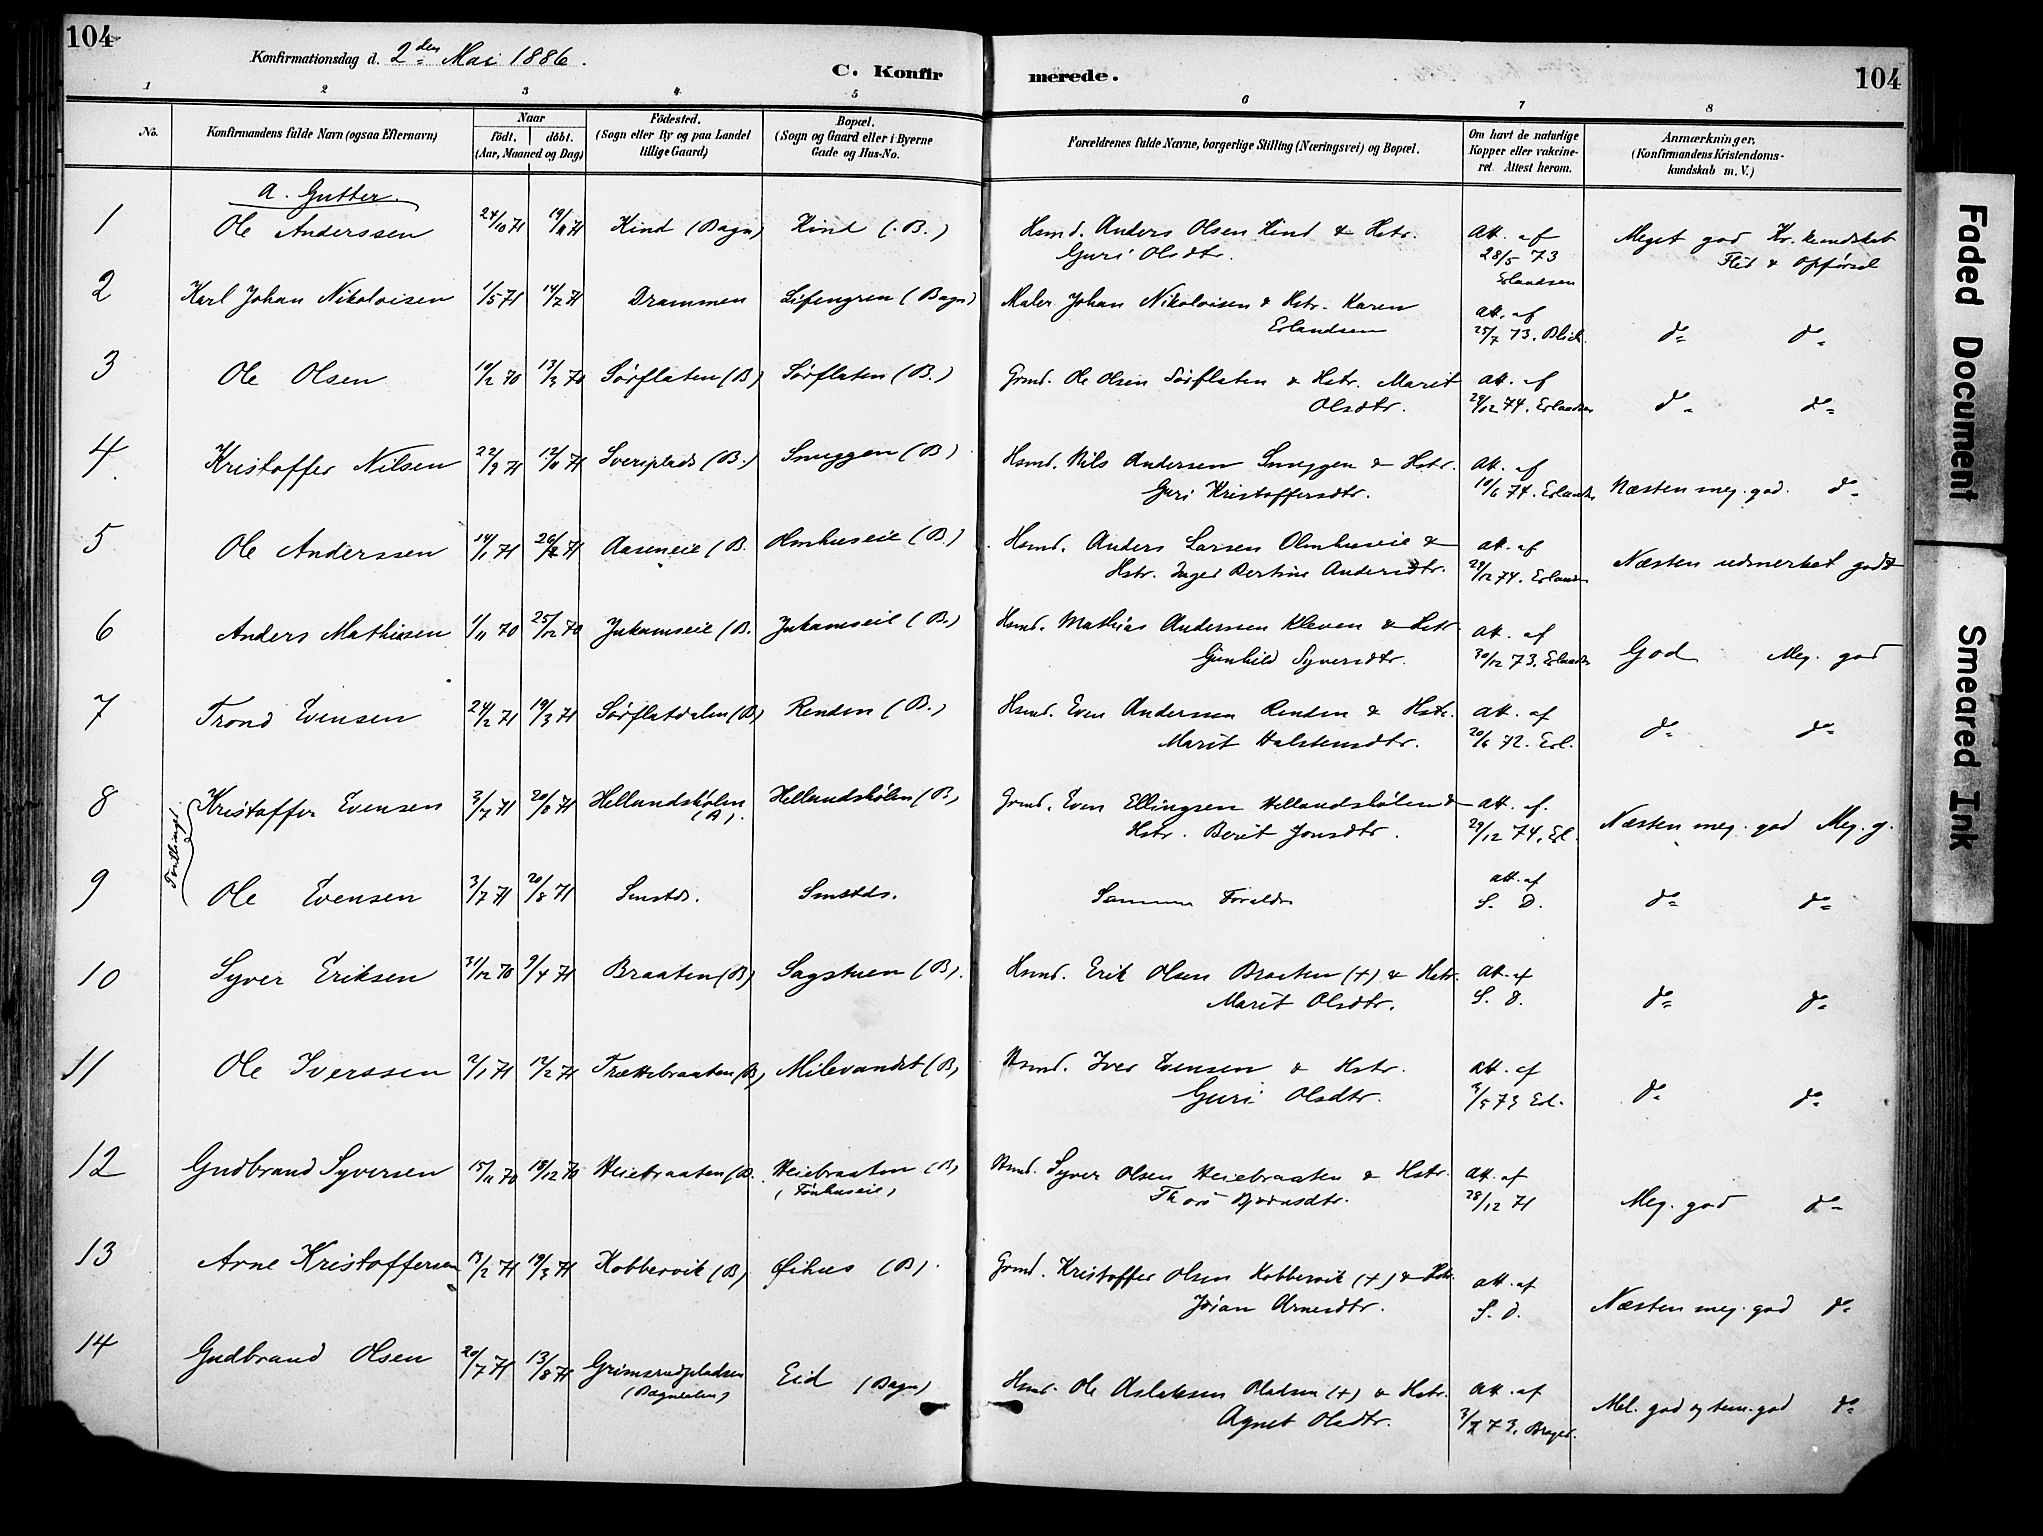 104
Konfirmationsdag d. 2den Mai 1886.
C. Konfirmerede.
104
1 2 3 4 5 6 7 8
No.
Konfirmandens fulde Navn (ogsaa Efternavn)
Naar
födt. döbt.
(Aar, Maaned og Dag)
Födested.
(Sogn eller By og paa Landet
tillige Gaard)
Bopæl.
(Sogn og Gaard eller i Byerne
Gade og Hus-No.
Forældrenes fulde Navne, borgerlige Stilling (Næringsvei) og Bopæl.
Om havt de naturlige
Kopper eller vakcine-
ret. Attest herom.
Anmærkninger,
(Konfirmandens Kristendoms-
kundskab m. V.)
a. Gutter.
1 Ole Anderssen 24/10 71 19/11 71 Hind (Bagn) Hind (B.) Hsmd. Anders Olsen Hind & Hstr. Att. af Meget god Kr. kundskab
Guri Olsdtr. 28/5 73 Flid & Opførsel
Erlandsen
2 Karl Johan Nikolaisen 1/5 71 14/7 71 Drammen (Bagn) Maler Johan Nikolaisen & Hstr. Karen Att. af
Erlandsen 25/7 73. Blich. do do
3 Ole Olsen 10/2 70 13/3 70 Sørflaten (B) Sørflaten (B.) Grmd. Ole Olsen Sørflaten & Hstr. Marit Att. af
Olsdtr. 29/12 74. Erlandsen do do
4 Kristoffer Nilsen 22/9 71 12/11 71 (B.) Snuggen (B) Hsmd. Nils Andersen Snuggen & Hstr. Att. af
Guri Kristoffersdtr. 10/6 74. Erlands Næsten meg. god. do
5 Ole Anderssen 14/1 71 26/2 71 Aaseneie (B. Olmhuseie (B.) Hsmd. Anders Larsen Olmhuseie & Att. af
Hstr. Inger Bertine Andersdtr. 29/12 74. Erlands Næsten udmerket godt
6 Anders Mathisen 1/11 70 25/12 70 Jukamseie (B. Jukamseie (B.) Hsmd. Mathias Anderssen Kleven & Hstr. Att. af
Gunhild Syversdtr. 30/12 73. Erlands God Meg. god
7 Trond Evensen 24/2 71 19/3 71 Sørflatdalen (B) Renden (B.) Hsmd. Even Anderssen Renden & Hstr. Att. af
Marit Halstensdtr. 20/6 72. Erl. do do
Tvillinger
8 Kristoffer Evensen 3/7 71 20/8 71 Hellandshølen Hellandshølen (B) Grmd. Even Ellingsen Hellandshølen & Att. af.
(A). Hstr. Berit Jonsdtr. 29/12 74. Erl. Næsten meg. god Meg. g.
9 Ole Evensen 3/7 71 20/8 71 Smstds. Smstds. Samme Foreldre att. af
S. D. do do
10 Syver Eriksen 31/12 70 9/4 71 Braaten (B) Sagstuen (B). Hsmd. Erik Olsen Braaten (+) & Hstr. Att. af
Marit Olsdtr. S. D. do do
11 Ole Iverssen 2/1 71 12/2 71 Trættebraaten (B) Milevandet (B) Hsmd. Iver Evensen & Hstr. Att. af
Guri Olsdtr. 9/5 73 Erl. do do
12 Gudbrand Syversen 15/11 70 18/12 70 Heiebraaten (B. Heiebraaten (B) Hsmd. Syver Olsen Heiebraaten & Hstr. Att. af
(Fønhuseie) Thora Bjørnsdtr. 28/12 71 Meg. god do
13 Arne Kristoffersen 13/2 71 19/3 71 Kobbervik (B) Øihus (B). Grmd. Kristoffer Olsen Kobbervik (+) & Hstr. Att. af
Jöran Arnesdtr. S. D. Næsten meg. god do
14 Gudbrand Olsen 20/7 71 13/8 71 Grimsrudpladsen Eid (Bagn) Hsmd. Ole Aslaksen Pladsen (+) & Hstr. Att. af
(Bægndalen) Agnet Olsdtr. 3/7 73. Mel. god og tem. god do
Faded Document
Smeared Ink